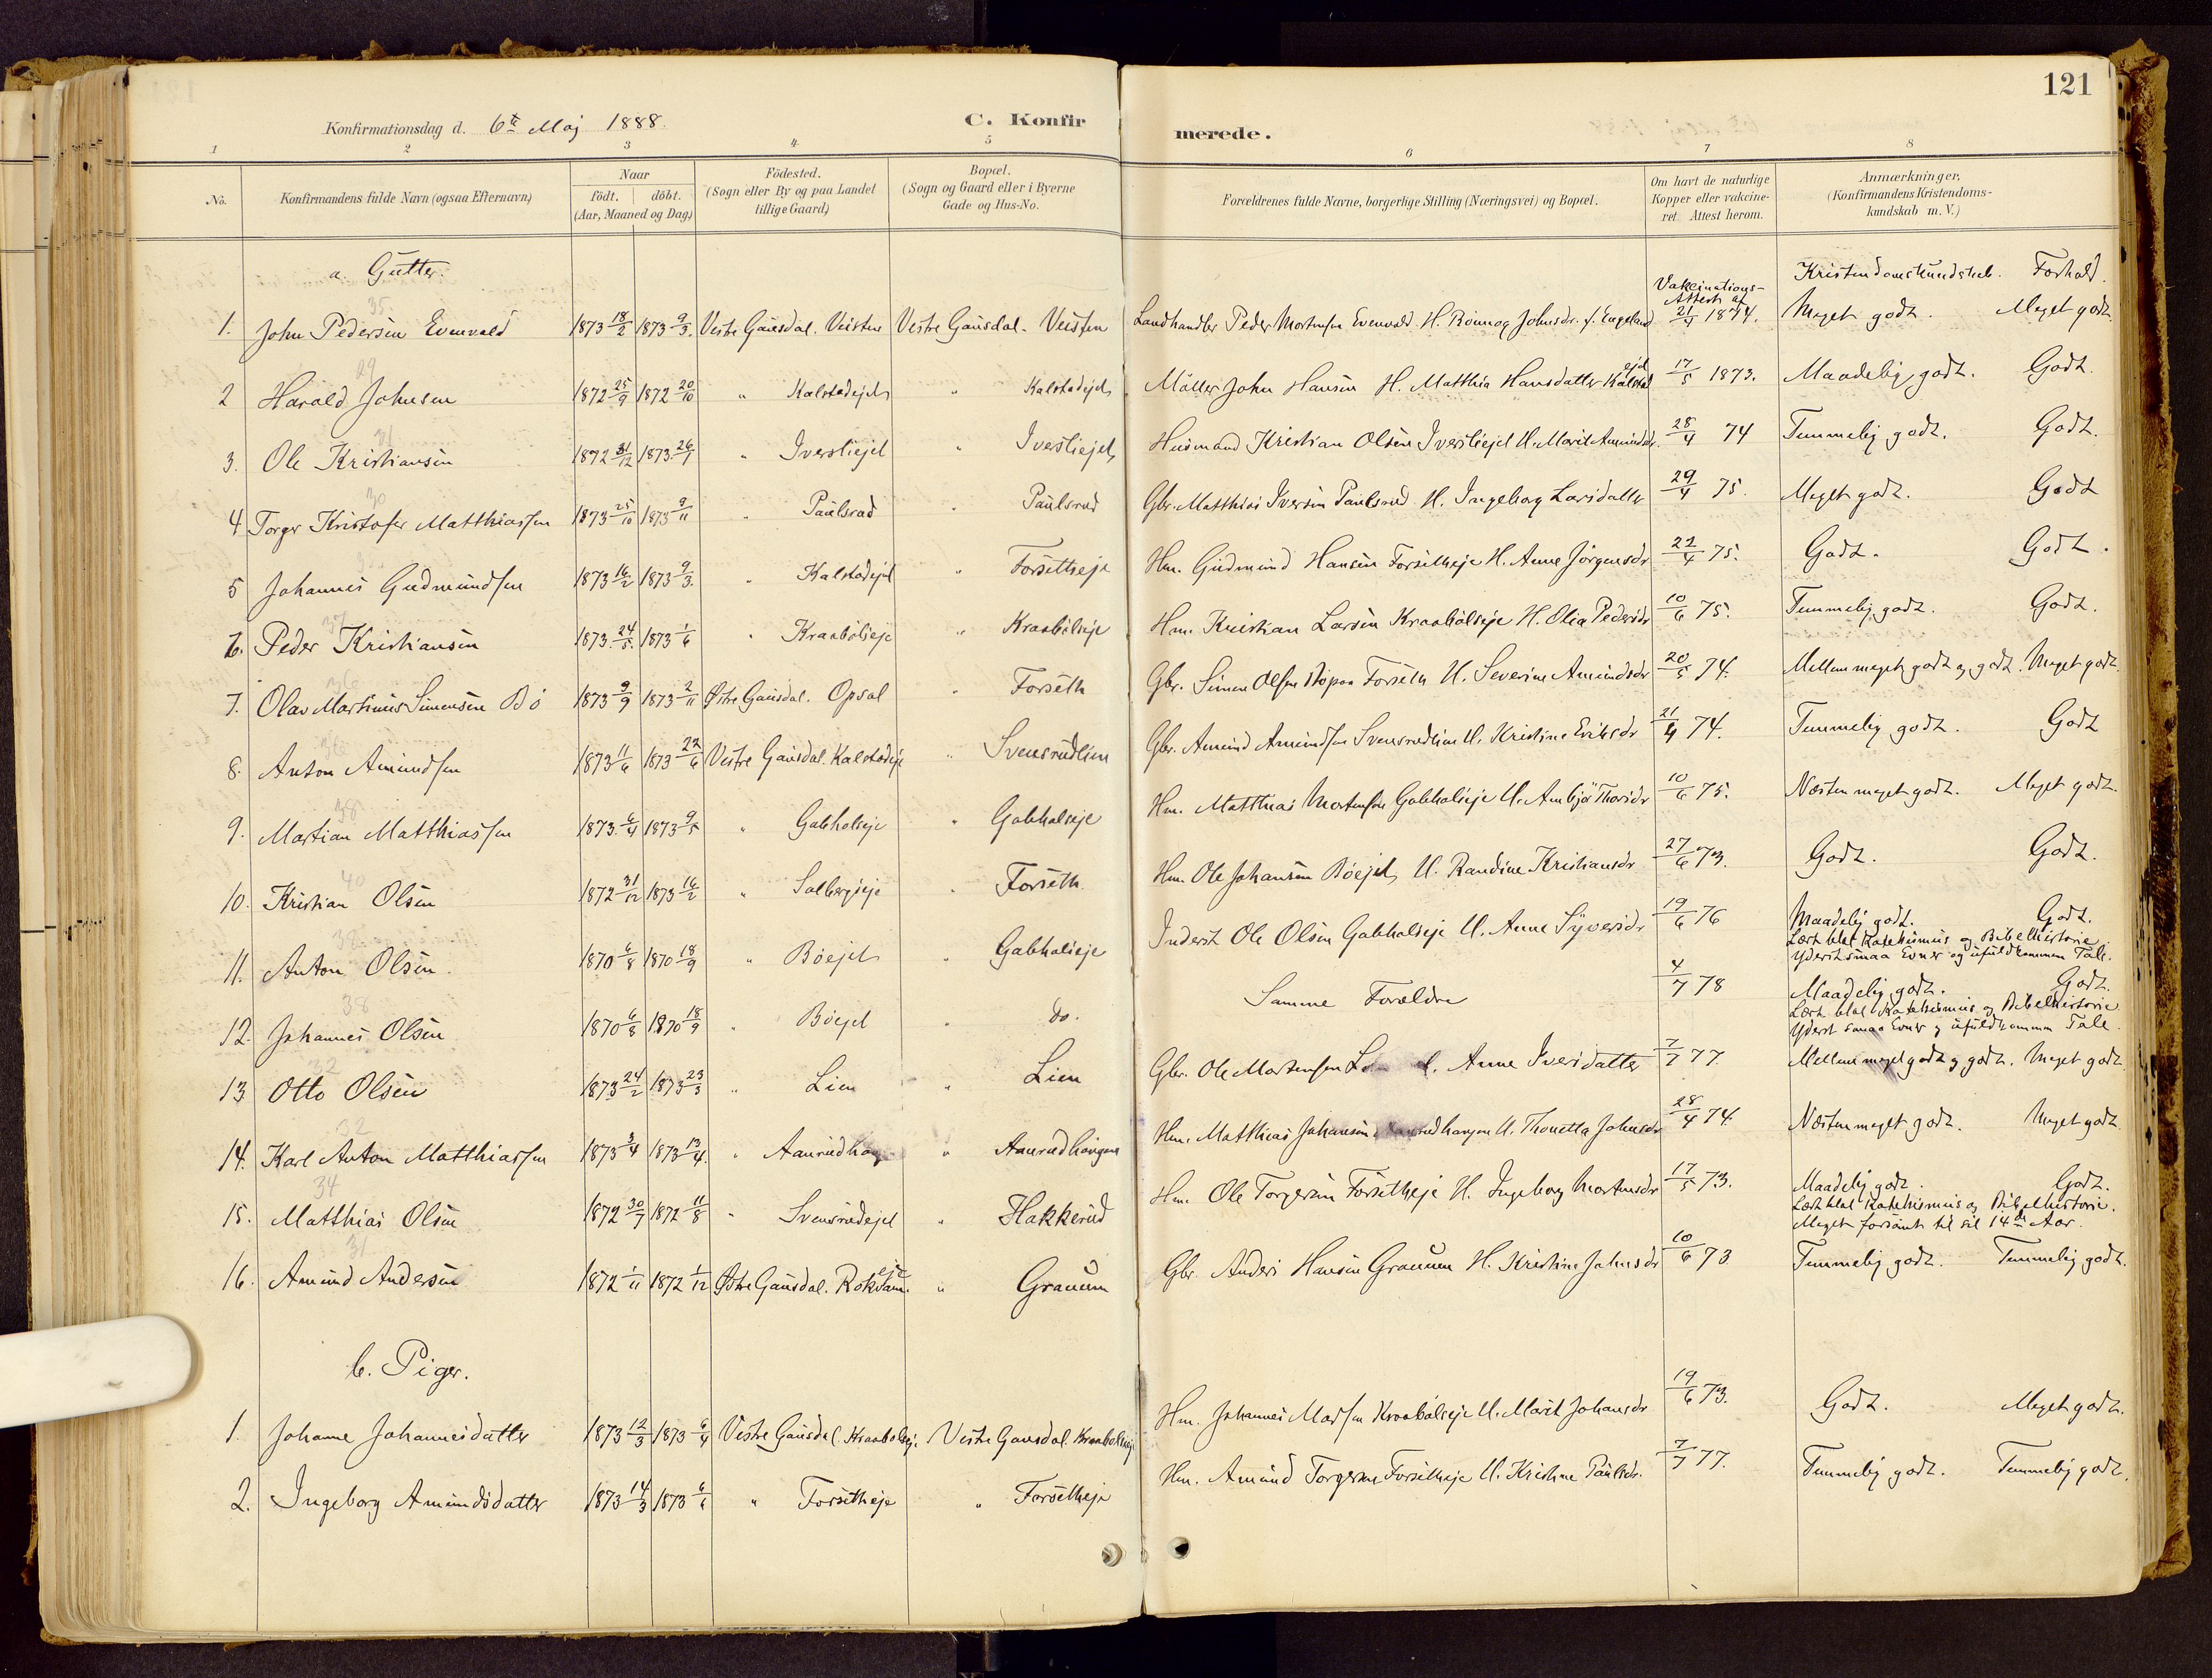 121
Konfirmationsdag d. 6te Maj 1888.
C. Konfirmerede.
1 2 3 4 5 6 7 8
No.
Konfirmandens fulde Navn (ogsaa Efternavn)
Naar födt. döbt. (Aar, Maaned og Dag)
Födested. (Sogn eller By og paa Landet tillige Gaard)
Bopæl. (Sogn og Gaard eller i Byerne Gade og Hus-No.
Forældrenes fulde Navne, borgerlige Stilling (Næringsvei) og Bopæl.
Om havt de naturlige Kopper eller vakcineret. Attest herom.
Anmærkninger. (Konfirmandens Kristendomskundskab m. V.)
a. Gutter.
Vakcinations-Attest af
Kristendomskundskab. Forhold.
1. John Pedersen Evenvold 1873 18/2 1873 9/3. Vestre Gausdal. Veisten Vestre Gausdal. Veisten Landhandler Peder Mortensen Evenvold. H. Rönnog Johnsdr. f. Engeland 21/4 1874. Meget godt. Meget godt.
2 Harald Johnsen 1872 25/9 1872 20/10 " Kalstadejet " Kalstadejet Möller John Hansen H. Matthia Hansdatter Kalstadejet 17/5 1873. Maadelig godt. Godt.
3. Ole Kristiansen 1872 31/12 1873. 26/1 " Iversliejet " Iversliejet Husmand Kristian Olsen Iversliejet H. Marit Amundsdr. 28/4 74 Temmelig godt. Godt.
4 Torger Kristofer Matthiassen 1873 25/10 1873 9/11 " Paulsrud " Paulsrud Gbr. Matthias Iversen Paulsrud H. Ingeborg Larsdatter 29/4 75. Meget godt. Godt
5 Johannes Gudmundsen 1873 16/2 1873 9/3. " Kalstadejet " Forsetheje Hm. Gudmund Hansen Forsetheje H. Anne Jörgensdr 22/4 75. Godt. Godt.
6. Peder Kristiansen 1873. 24/5. 1873 1/6 " Kraaböleje " Kraaböleje Hm. Kristian Larsen Kraaböleje H. Olia Pedersdr 10/6 75. Temmelig godt. Godt.
7. Olav Martinus Simensen Bö 1873 9/9 1873 2/11 Østre Gausdal. Opsal " Forseth Gbr. Simen Olsen Forseth H. Severine Amundsdr 20/5 74. Mellem meget godt og godt. Meget godt.
8. Anton Amundsen 1873 11/6 1873 22/6 Vestre Gausdal. Kalstadeje " Svensrudlien Gbr. Amund Amundsen Svensrudlien H. Kristine Eriksdr 21/4 74. Temmelig godt. Godt
9. Martian Matthiassen 1873. 6/4 1873 9/5 " Gabhalseje " Gabhalseje Hm. Matthias Mortensen Gabhalseje H. Anbjö Thorsdr 10/6 75. Næsten meget godt. Meget godt.
10. Kristian Olsen 1872 31/12 1873 16/2 " Solbergeje " Forseth Hm. Ole Johansen Böejet H. Randine Kristiansdr 27/6 73. Godt. Godt.
11. Anton Olsen. 1870 6/8 1870 18/9 " Böejet " Gabhalseje Inderst Ole Olsen Gabhalseje H. Anne Syversdr 19/6 76 Maadelig godt. Godt.
Læst blot Katekismus og Bibelhistorie
Yderst smaa Evner og ufuldkommen Tale.
12. Johannes Olsen 1870 6/8 1870 18/9 " Böejet " do. Samme Forældre 4/7 78 Maadelig godt. Godt.
Læst blot Katekismus og Bibelhistorie
Yderst smaa Evner og ufuldkommen Tale.
13 Otto Olsen 1873 24/2 1873 23/3 " Lien " Lien Gbr. Ole Mortensen Anne Iversdatter 7/7 77. Mellem meget godt og godt. Meget godt
14. Karl Anton Matthiassen 1873 3/4 1873 13/4. " Aanrudhaug " Aanrudhaugen Hm. Matthias Johansen Aanrudhaugen H. Thonetta Johnsdr 28/4 74. Næsten meget godt. Meget godt
15. Matthias Olsen 1872 30/7 1872 11/8 " Svensrudejet " Hakkerud Hm. Ole Torgersen Forsetheje H. Ingeborg Mortensdr 17/5 73. Maadelig godt. Godt.
Læst blot Katekismus og Bibelhistorie.
Meget forsömt til sit 14de Aar.
16. Amund Andersen 1872 1/11 1872 1/12 Østre Gausdal. Rokvam eje " Grauum Gbr. Anders Hansen Grauum H. Kristine Johnsdr 10/6 73 Temmelig godt. Temmelig godt.
b. Piger.
1. Johanne Johannesdatter 1873 12/3 1873 6/4 Vestre Gausdal. Kraaböleje Vestre Gausdal. Kraaböleje Hm. Johannes Madsen Kraaböleje H. Marit Johansdr 19/6 73. Godt. Meget godt.
2. Ingeborg Amundsdatter 1873 14/3 1873 6/6 " Forsetheje " Forsetheje Hm. Amund Torgersen Forsetheje H. Kristine Paulsdr. 7/7 77. Temmelig godt. Temmelig godt.